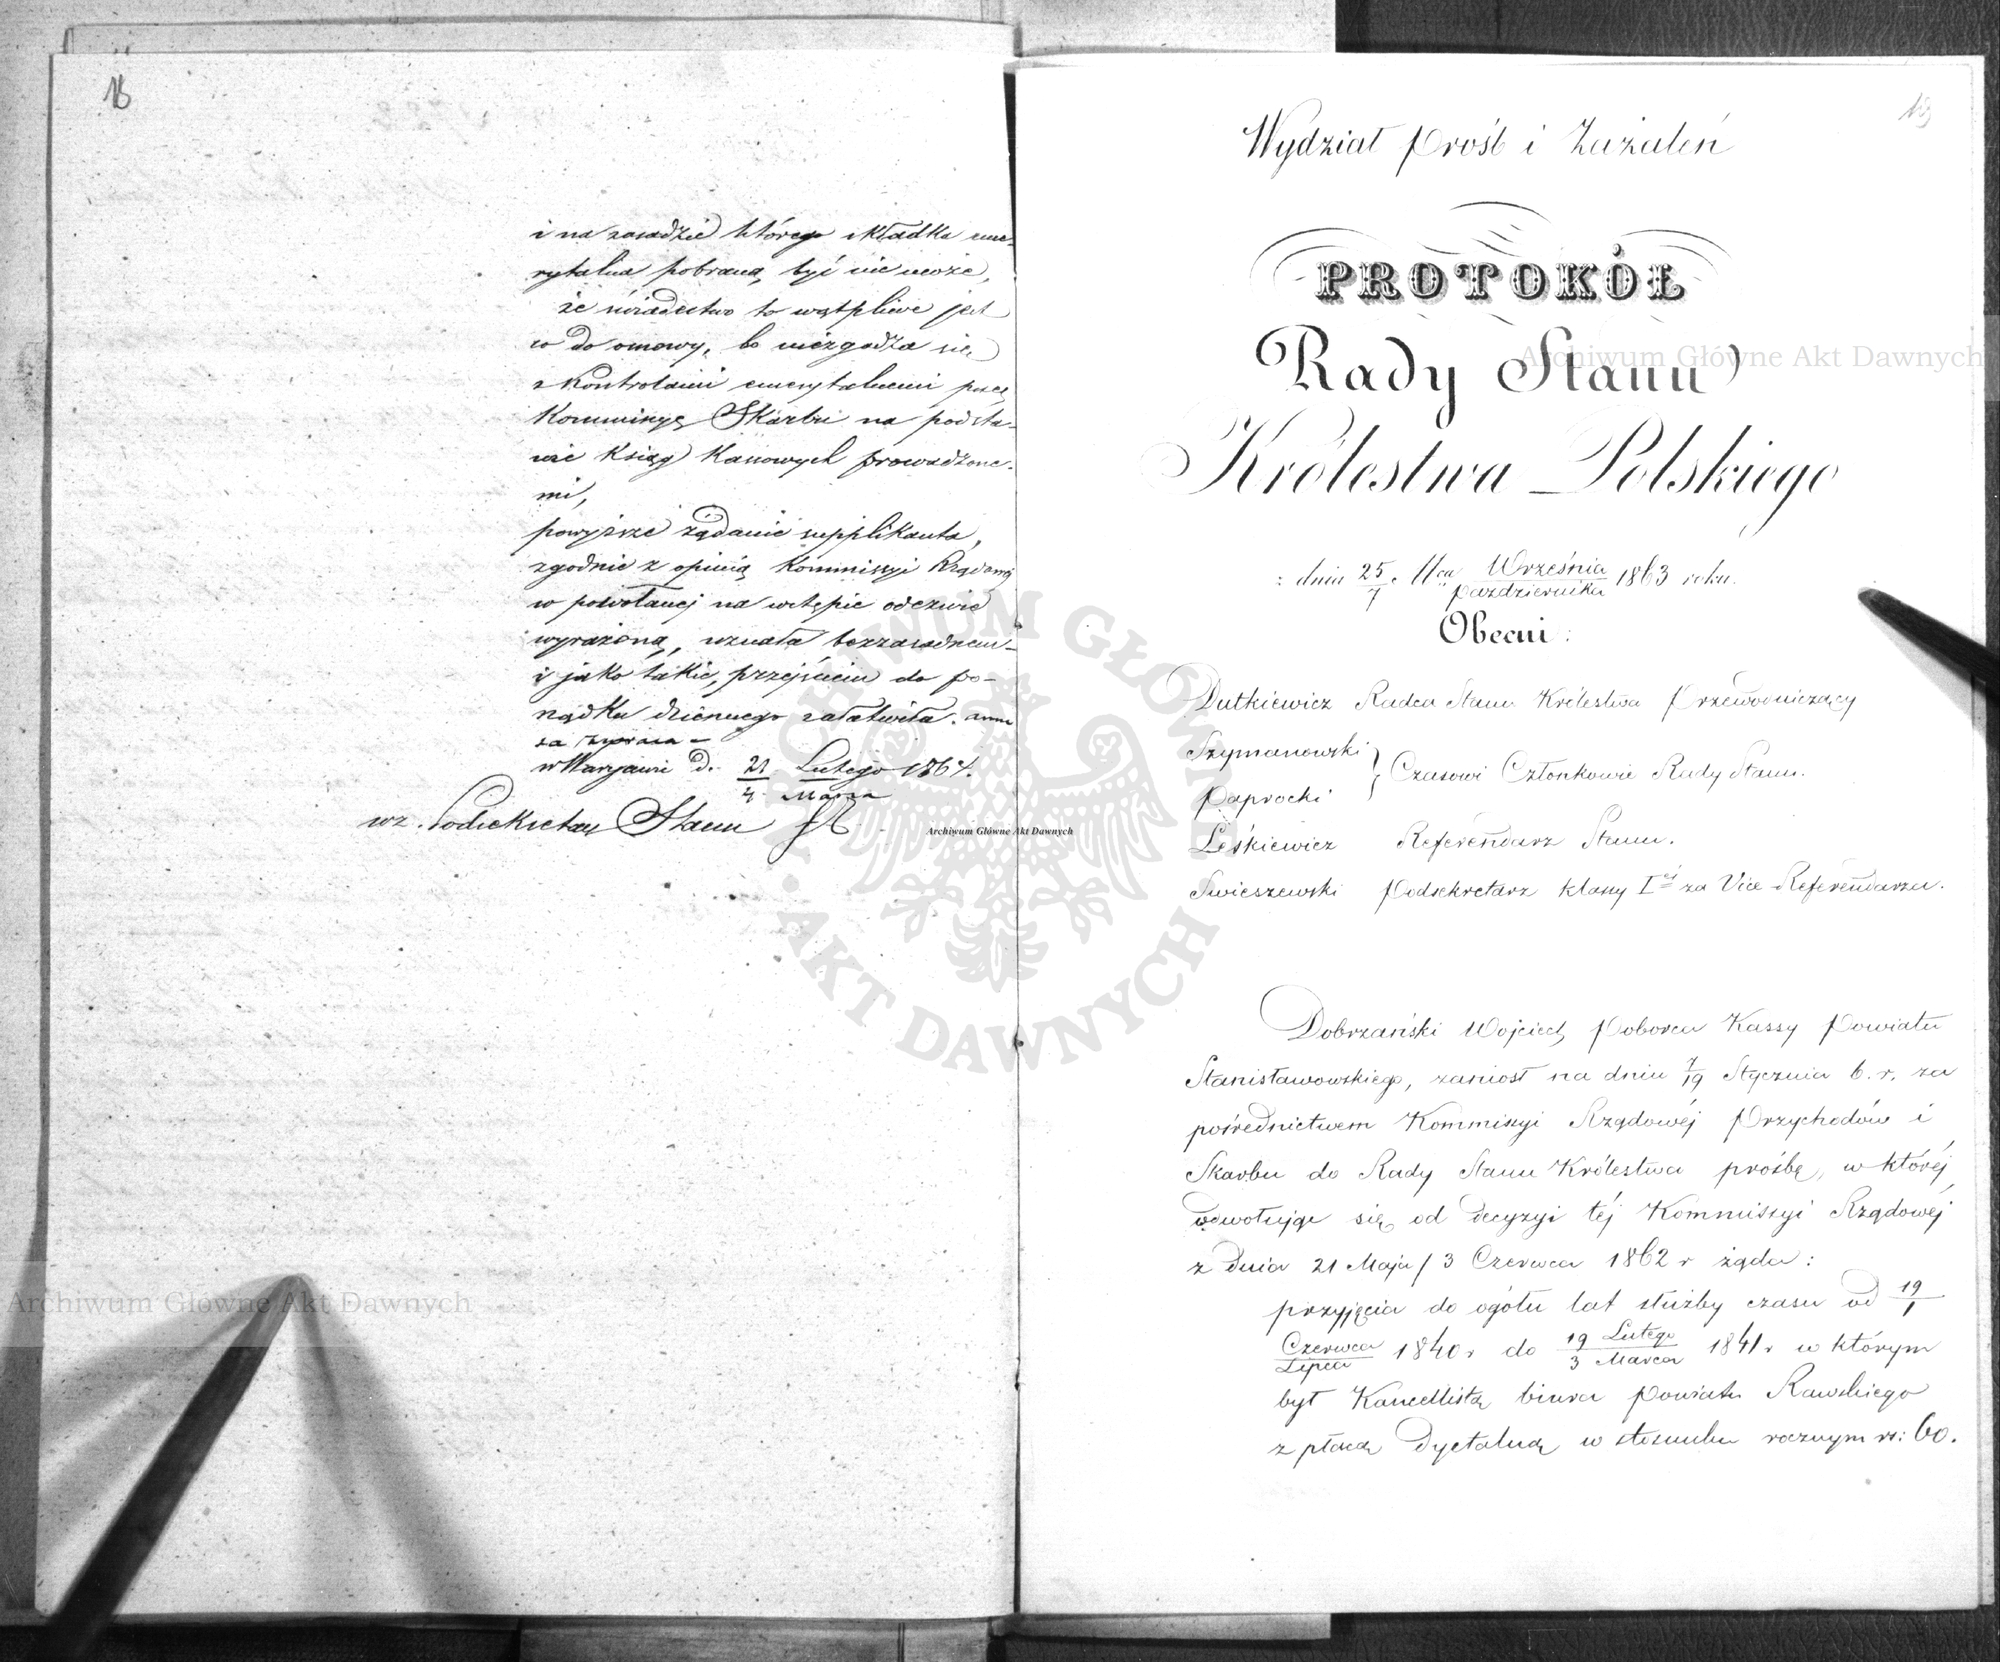 18
i na zasadzie którego składka eme-
rytalna pobraną być nie może,
że świadectwo to wątpliwe jest
co do osnowy, bo niezgadza się
z kontrolami emerytalnemi przez
Kommissyę Skarbu na podsta-
wie Ksiąg Kassowych prowadzone-
mi,
powyższe żądanie supplikanta,
zgodnie z opinią Kommissyi Rządowej
w powołanej na wstępie odezwie
wyrażoną, uznała bezzasadnem
i jako takie, przejściem do po-
rządku dziennego załatwiła.
w Warszawie d. 21 Lutego 1864.
4 Marca
wz. Podsekretarz Stanu
19
Wydział Próśb i Zażaleń
PROTOKÓŁ
Rady Stanu
Królestwa Polskiego
z dnia 25/7 Mca Września/Października 1863 roku.
Obecni:
Dutkiewicz Radca Stanu Królestwa Przewodniczący
Szymanowski
Paprocki } Czasowi Członkowie Rady Stanu.
Leśkiewicz Referendarz Stanu.
Swieszewski Podsekretarz klassy Iej za Vice-Referendarza.
Dobrzański Wojciech Poborca Kassy Powiatu
Stanisławowskiego, zaniosł na dniu 7/19 Stycznia b. r. za
pośrednictwem Kommissyi Rządowéj Przychodów i
Skarbu do Rady Stanu Królestwa prośbę, w któréj
odwołując się od decyzyi téj Kommissyi Rządowéj
z dnia 21 Maja / 3 Czerwca 1862 r żąda:
przyjęcia do ogółu lat służby czasu od 19/1
Czerwca/Lipca 1840 r do 19 Lutego/3 Marca 1841 r w którym
był Kancellistą biura Powiatu Rawskiego
z płacą dyetalną w stosunku rocznym rs: 60.
Archiwum Główne Akt Dawnych
Archiwum Główne Akt Dawnych
Archiwum Główne Akt Dawnych
ARCHIWUM GŁÓWNE AKT DAWNYCH